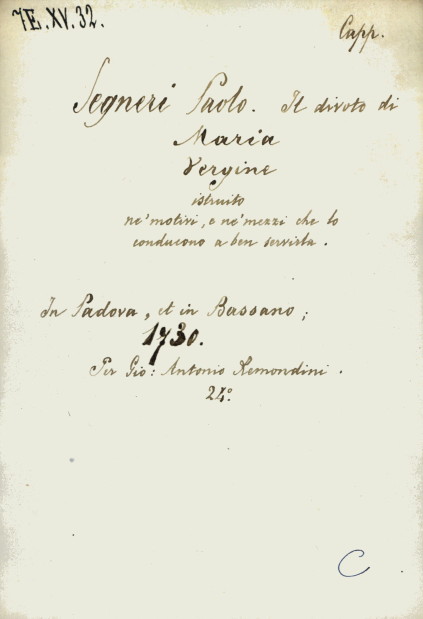 7E.XV.32.
Capp.
Segneri Paolo. Il divoto di
Maria
Vergine
istruito
ne' motivi, e ne' mezzi che lo
conducono a ben servirla.
In Padova, et in Bassano;
1730.
Per Gio: Antonio Remondini.
24º.
C